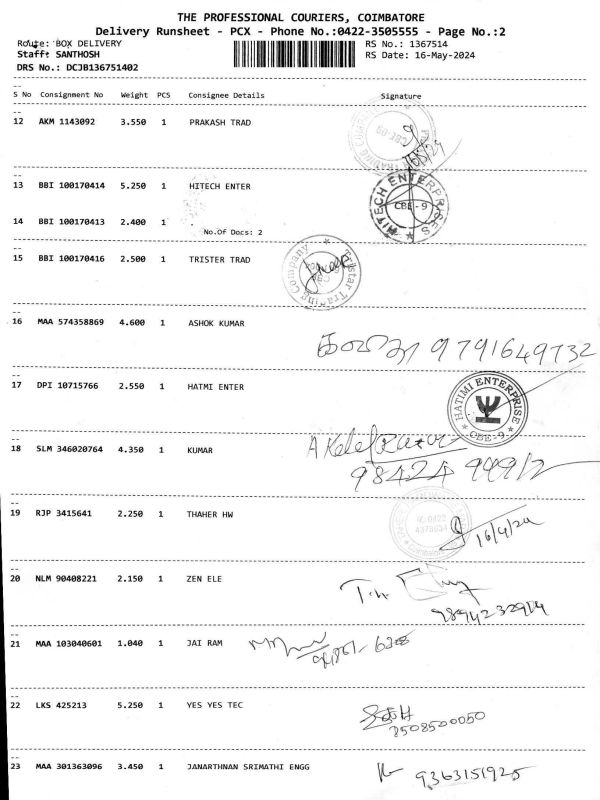 THE PROFESSIONAL COURIERS, COIMBATORE
Delivery Runsheet - PCX - Phone No.:0422-3505555 - Page No.:2
Route: BOX DELIVERY RS No.: 1367514
Staff: SANTHOSH RS Date: 16-May-2024
DRS No.: DCJB136751402
S No Consignment No Weight PCS Consignee Details Signature
12 AKM 1143092 3.550 1 PRAKASH TRAD
13 BBI 100170414 5.250 1 HITECH ENTER
HITECH ENTERPRISES
CBE-9
14 BBI 100170413 2.400 1
No.Of Docs: 2
15 BBI 100170416 2.500 1 TRISTER TRAD
Tristar Trading Company
16 MAA 574358869 4.600 1 ASHOK KUMAR
9791649732
17 DPI 10715766 2.550 1 HATMI ENTER
HATIMI ENTERPRISE
CBE-9
18 SLM 346020764 4.350 1 KUMAR
19 RJP 3415641 2.250 1 THAHER HW
16/4/24
20 NLM 90408221 2.150 1 ZEN ELE
21 MAA 103040601 1.040 1 JAI RAM
22 LKS 425213 5.250 1 YES YES TEC
8508500050
23 MAA 301363096 3.450 1 JANARTHNAN SRIMATHI ENGG
9363151925